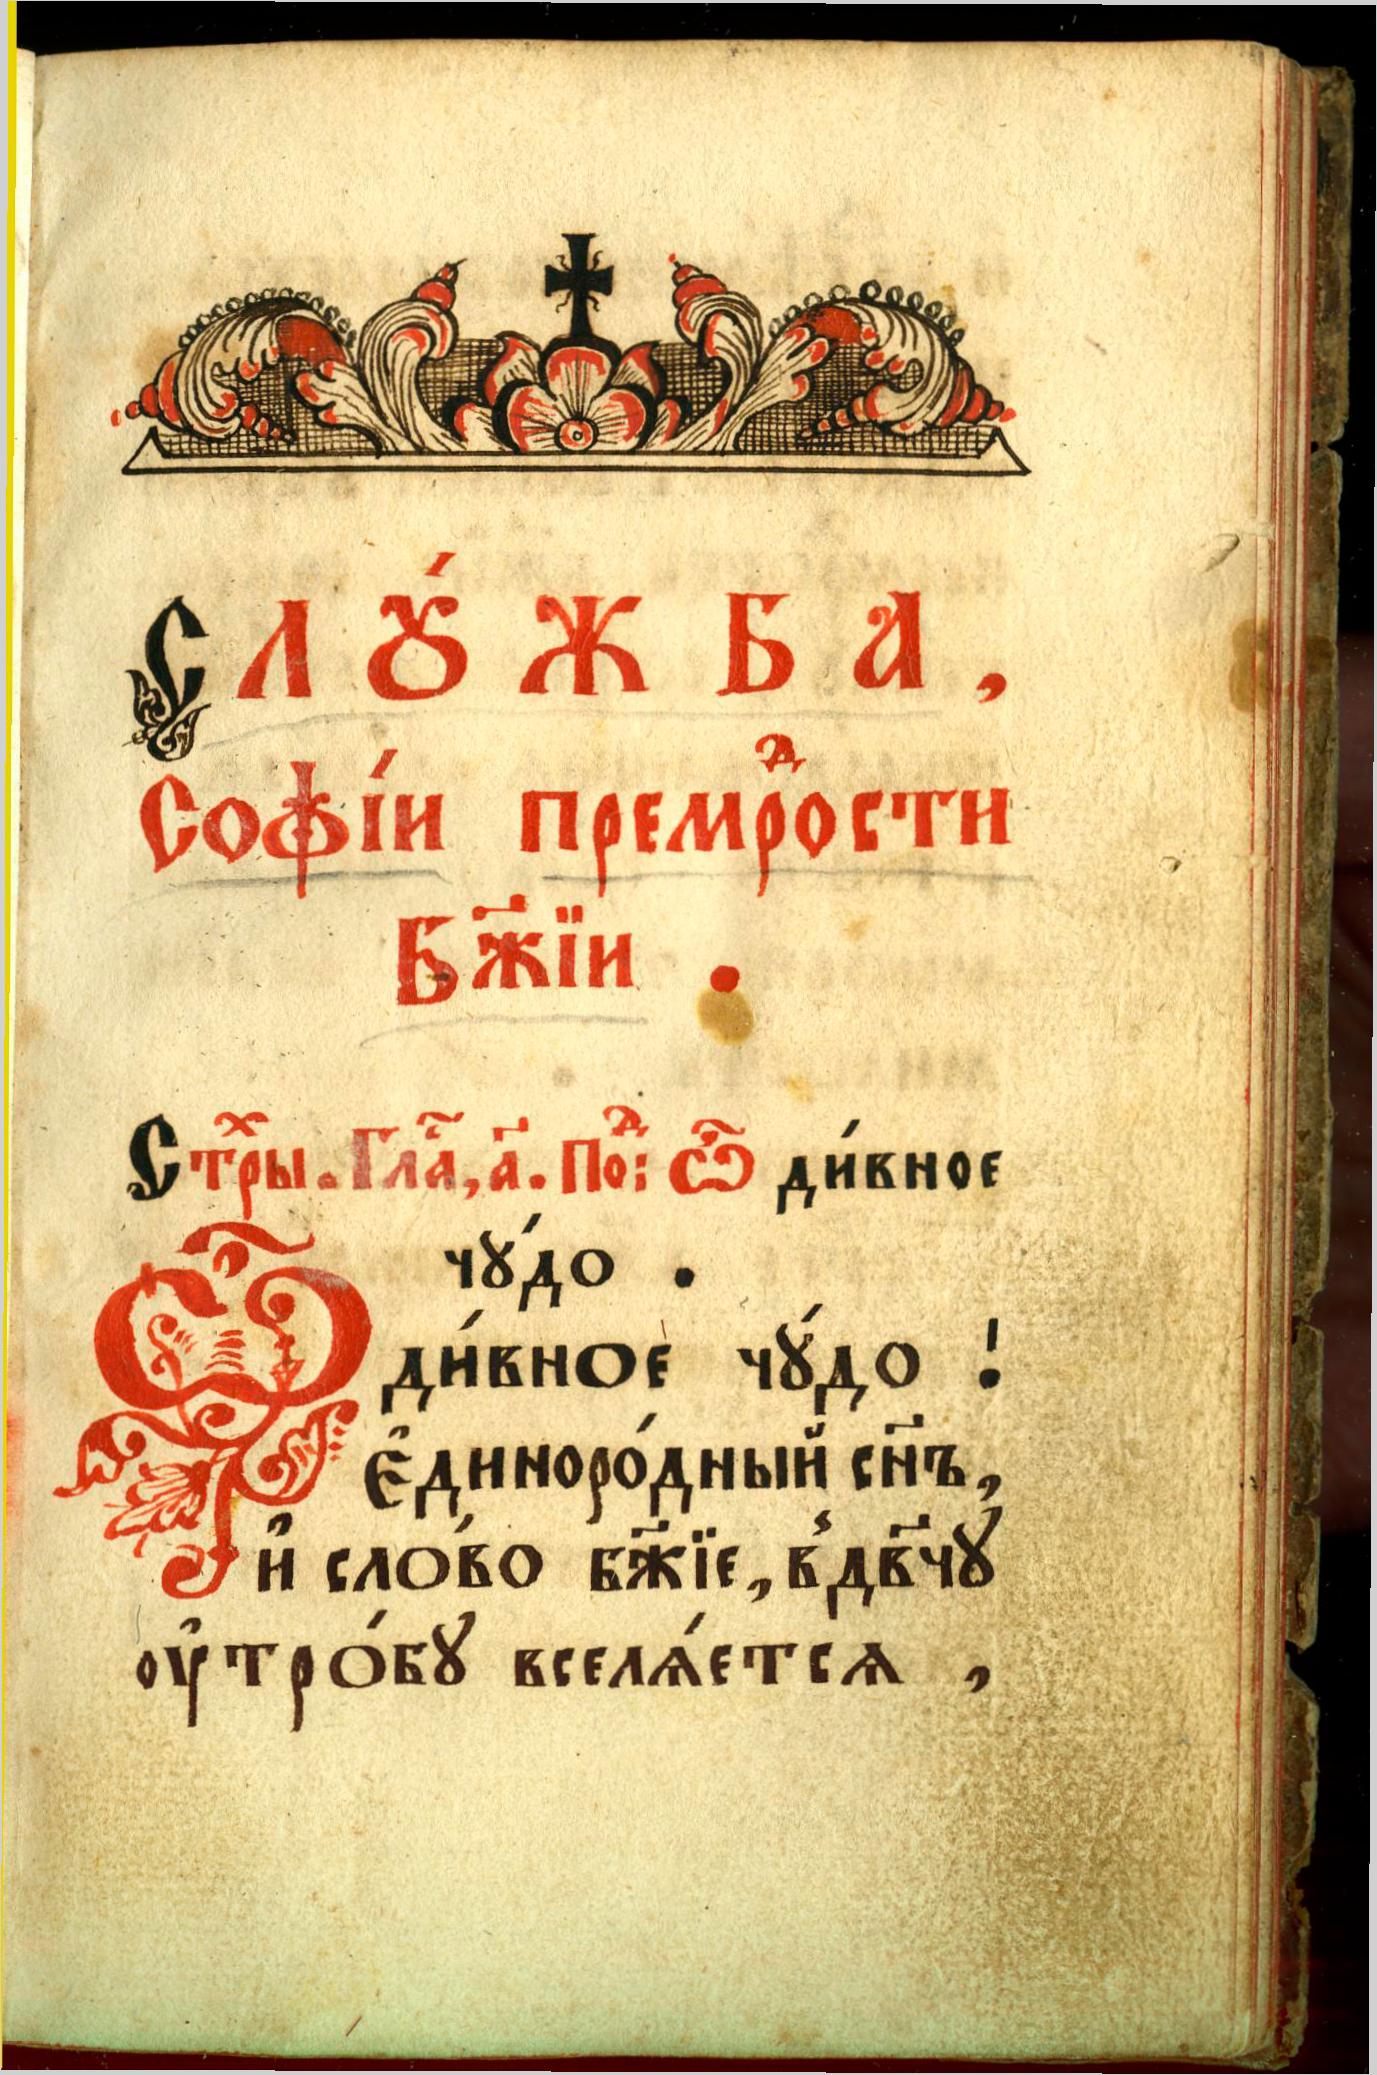 Слꙋ́жба,
Софі́и премрⷣости
Бж҃їи .
Стрⷯы. Гла҃, а҃. Поⷣ: Ѽ ди́вное
чꙋ́до .
Ѽ ди́вное чꙋ́до !
є҆диноро́дный сн҃ъ,
и҆ сло́во бж҃їе, в̾ дв҃чꙋ
оу҆тро́бꙋ вселѧ́етсѧ ,